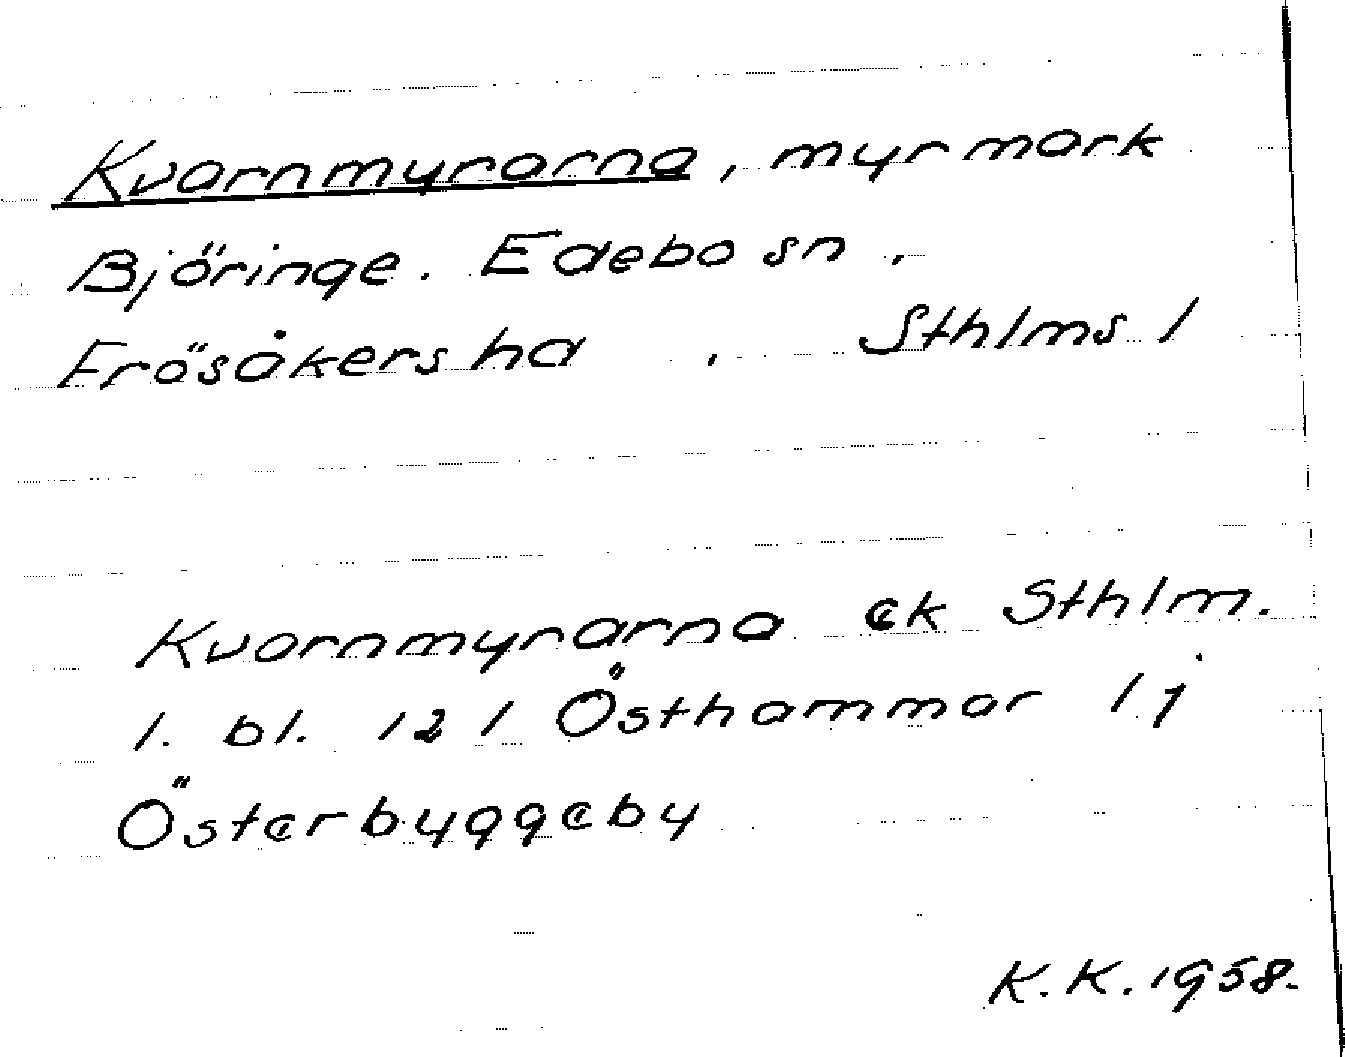 Kvarnmyrarna, myrmark
Björinge. Edebo sn,
Frösåkers hd, Sthlms l
Kvarnmyrarna ek Sthlm.
l. bl. 12 l Östhammar l j
Österbyggeby
K.K. 1958.